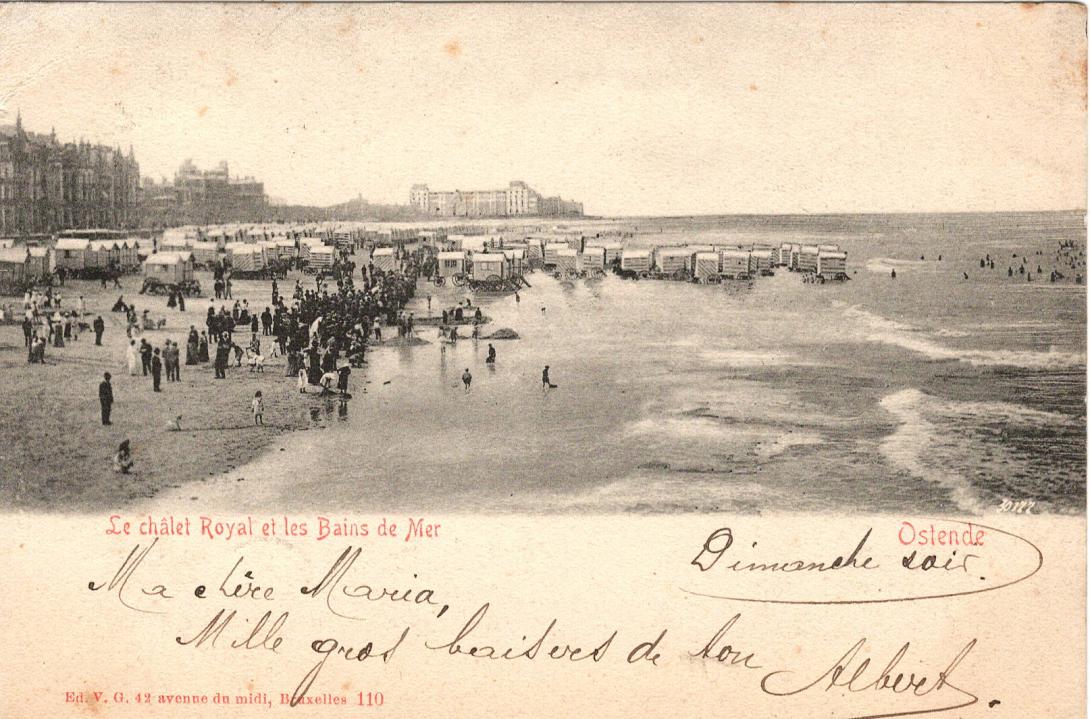 Le châlet Royal et les Bains de Mer
Ostende
Dimanche soir.
Ma chère Maria,
Mille gros baisers de ton
Albert.
Ed. V. G. 42 avenue du midi, Bruxelles 110